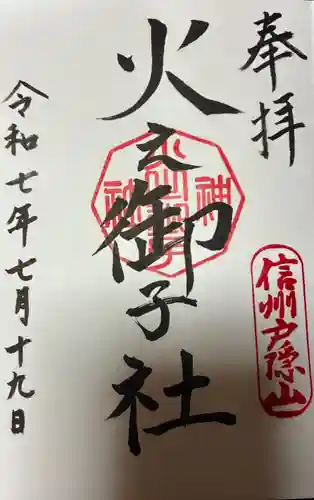 奉拝
信州戸隠山
火之御子社
令和七年七月十九日